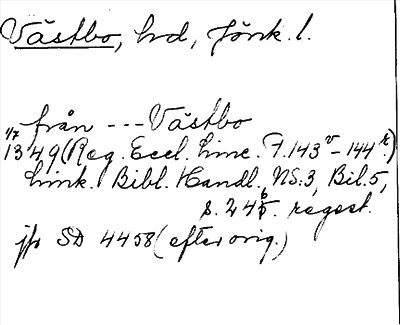 Västbo, hrd, Jönk. l.
från --- Västbo
1/7 1349 (Reg. Eccl. Linc. F. 143v - 144r)
Link. Bibl. Handl., NS: 3, Bil. 5,
s. 246. regest.
jfr SD 4458 (efter orig.)